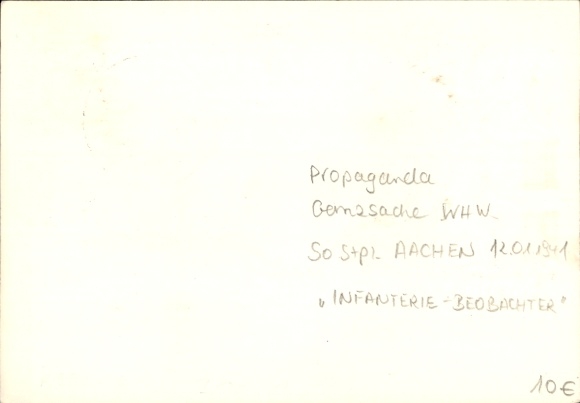 Propaganda
Ganzsache WHW
So Stpl. AACHEN 12.01.1941
„INFANTERIE-BEOBACHTER"
10€